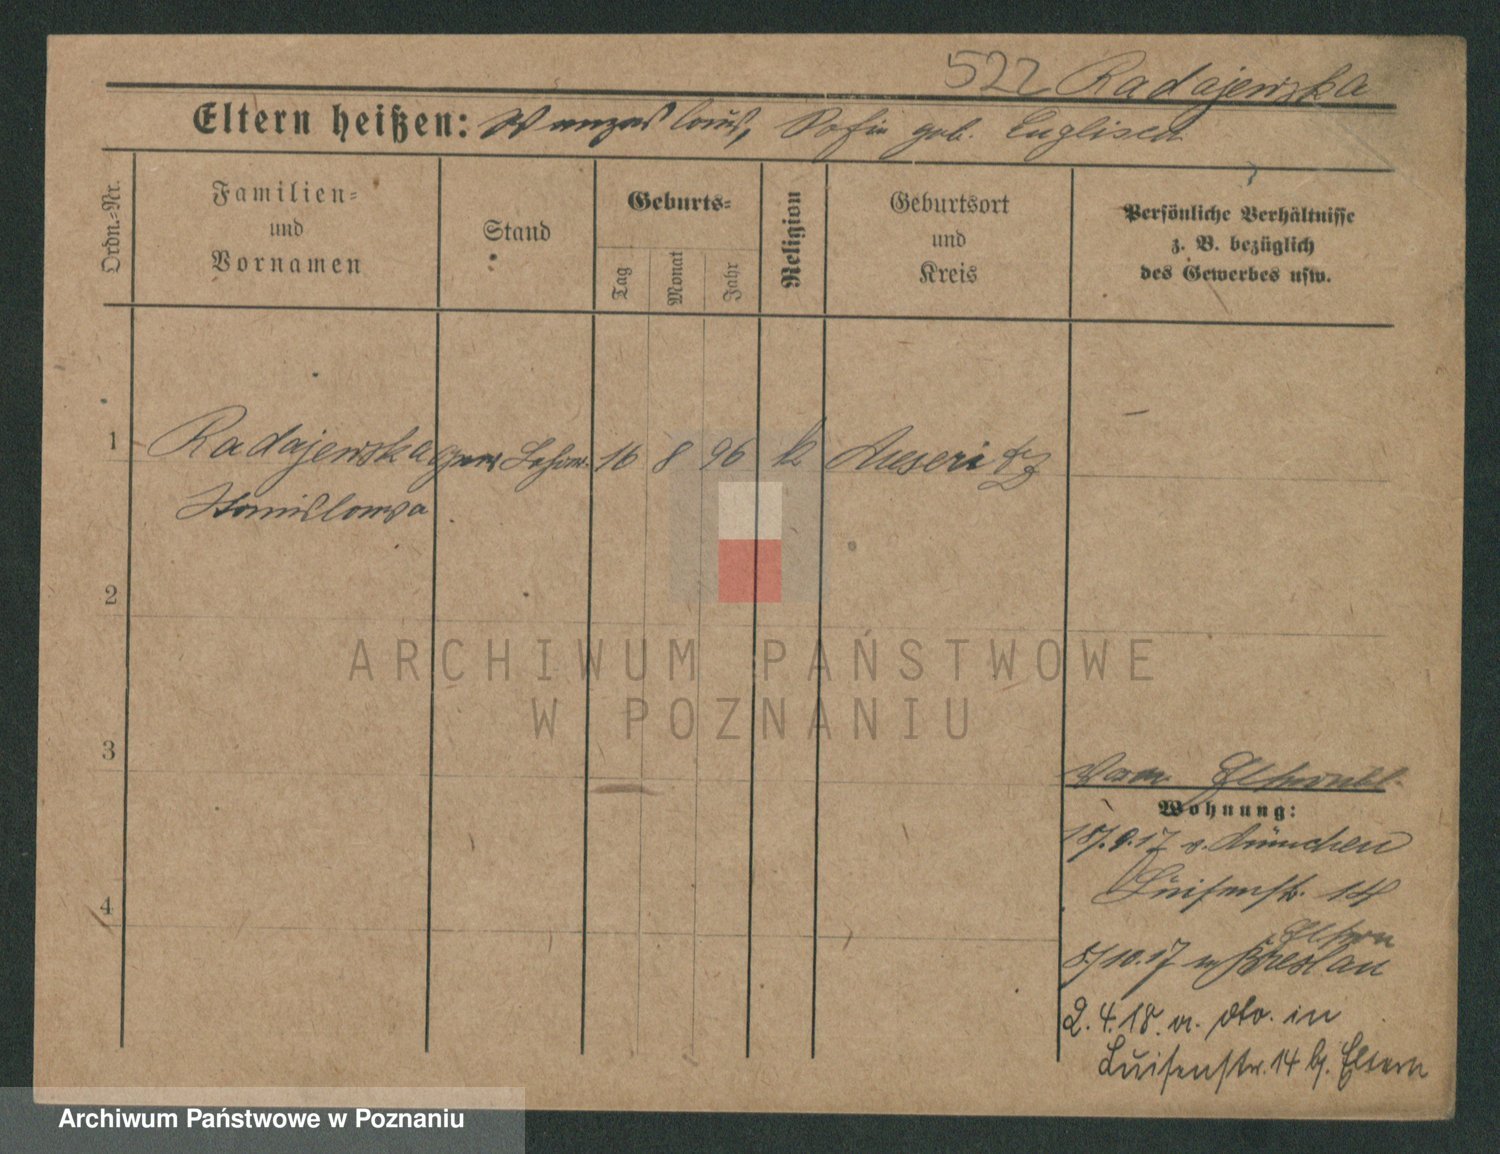 522 Radajewska
Eltern heißen: Wenzeslaus, Sofie geb. Englisch
Ordn.=Nr.
Familien=
und
Vornamen
Stand
Geburts=
Tag
Monat
Jahr
Religion
Geburtsort
und
Kreis
Persönliche Verhältnisse
z. B. bezüglich
des Gewerbes usw.
1
Radajewska 16 8 96 k Meseritz
Stanislawa
2
3
4
Wohnung:
18/9.17 v. München
Luisenstr. 14
Eltern
5/10.17 n Breslau
2.4.18. a. dto. in
Luisenstr. 14 b. Eltern
ARCHIWUM PAŃSTWOWE
W POZNANIU
Archiwum Państwowe w Poznaniu